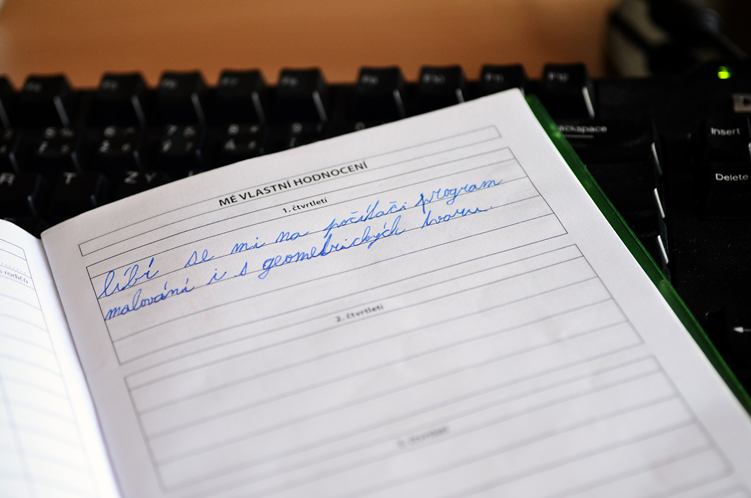 Insert
Delete
Backspace
R T ZY
MÉ VLASTNÍ HODNOCENÍ
1. čtvrtletí
líbí se mi na počítači program
malování i s geometrických tvaru.
2. čtvrtletí